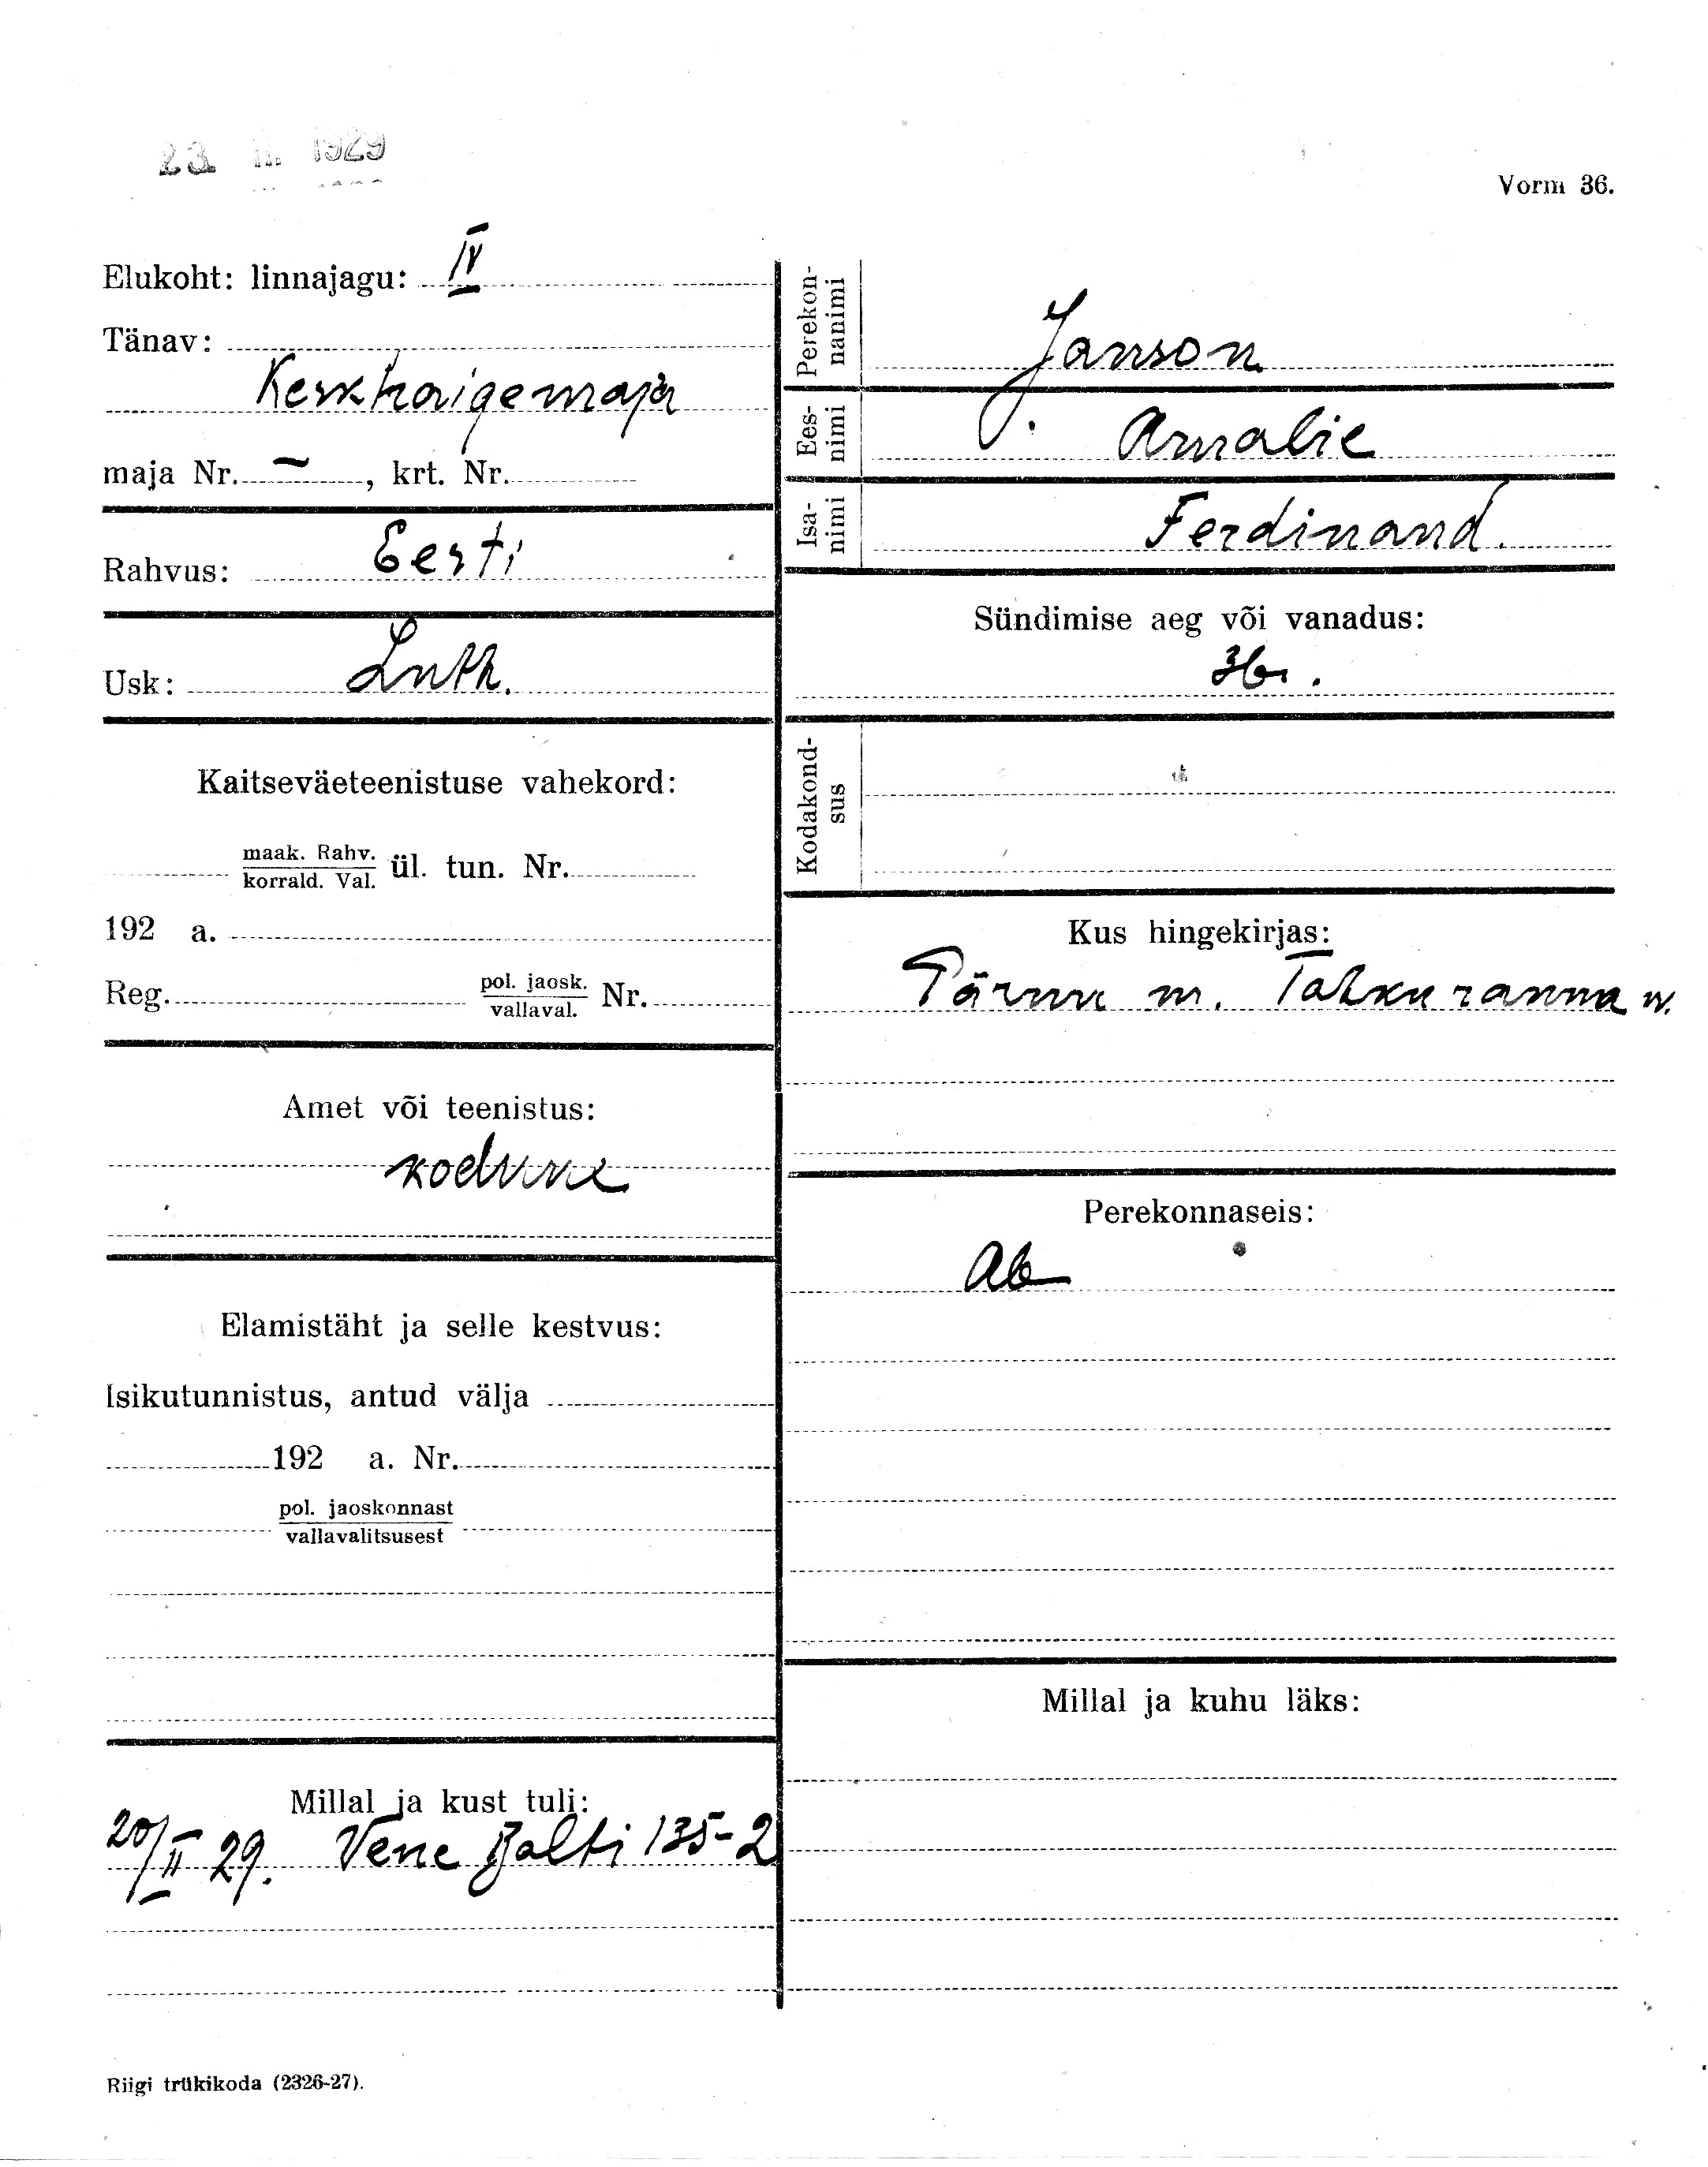 23. II. 1929
Vorm 36.
Elukoht: linnajagu: IV
Tänav:
Keskhaigemaja
maja Nr. – , krt. Nr.
Rahvus: Eesti
Usk: Luth.
Kaitseväeteenistuse vahekord:
maak. Rahv.
korrald. Val. ül. tun. Nr.
192 a.
Reg. pol. jaosk. Nr.
vallaval.
Amet või teenistus:
kodune
Elamistäht ja selle kestvus:
Isikutunnistus, antud välja
192 a. Nr.
pol. jaoskonnast
vallavalitsusest
Millal ja kust tuli:
20/II 29. Vene Balti 135-2
Perekon-
nanimi
Janson
Ees-
nimi
Amalie
Isa-
nimi
Ferdinand.
Sündimise aeg või vanadus:
Kodakond-
sus
Kus hingekirjas:
Pärnu m. Tahkuranna w.
Perekonnaseis:
Ab
Millal ja kuhu läks:
Riigi trükikoda (2326-27).